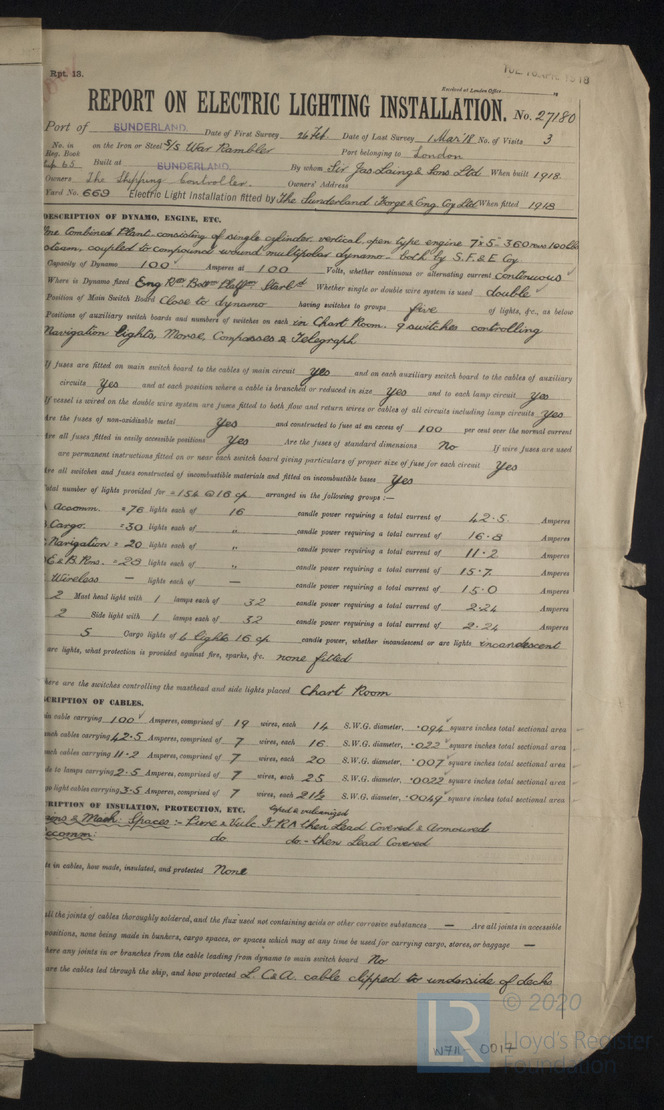 Rpt. 13.
TUE. 16 APR. 1918
Received at London Office
REPORT ON ELECTRIC LIGHTING INSTALLATION. No. 27180
Port of SUNDERLAND. Date of First Survey 26 Feb. Date of Last Survey 1 Mar '18 No. of Visits 3
No. in Reg. Book on the Iron or Steel S/S War Rambler Port belonging to London
65 Built at SUNDERLAND. By whom Sir Jas. Laing & Sons Ltd. When built 1918.
Owners The Shipping Controller. Owners' Address
Yard No. 669 Electric Light Installation fitted by The Sunderland Forge & Eng Coy Ltd When fitted 1918
DESCRIPTION OF DYNAMO, ENGINE, ETC.
One Combined Plant consisting of single cylinder vertical, open type engine 7" x 5" - 360 revs 100 lbs
steam, coupled to compound wound multipolar dynamo - both by S.F. & E Coy
Capacity of Dynamo 100 Amperes at 100 Volts, whether continuous or alternating current continuous
Where is Dynamo fixed Eng Rm Bottm Platfm Starbd Whether single or double wire system is used double
Position of Main Switch Board Close to dynamo having switches to groups five of lights, &c., as below
Positions of auxiliary switch boards and numbers of switches on each in Chart Room. 9 switches controlling
Navigation Lights, Morse, Compasses & Telegraph
If fuses are fitted on main switch board to the cables of main circuit yes and on each auxiliary switch board to the cables of auxiliary
circuits yes and at each position where a cable is branched or reduced in size yes and to each lamp circuit yes
If vessel is wired on the double wire system are fuses fitted to both flow and return wires or cables of all circuits including lamp circuits yes
Are the fuses of non-oxidizable metal yes and constructed to fuse at an excess of 100 per cent over the normal current
Are all fuses fitted in easily accessible positions yes Are the fuses of standard dimensions No If wire fuses are used
are permanent instructions fitted on or near each switch board giving particulars of proper size of fuse for each circuit yes
Are all switches and fuses constructed of incombustible materials and fitted on incombustible bases yes
Total number of lights provided for = 154 @ 16 cp arranged in the following groups :—
A Accomm. = 76 lights each of 16 candle power requiring a total current of 42.5. Amperes
Cargo. = 30 lights each of " candle power requiring a total current of 16.8 Amperes
Navigation = 20 lights each of " candle power requiring a total current of 11.2 Amperes
E & B Rms. = 28 lights each of " candle power requiring a total current of 15.7 Amperes
Wireless — lights each of — candle power requiring a total current of 15.0 Amperes
2 Mast head light with 1 lamps each of 32 candle power requiring a total current of 2.24 Amperes
2 Side light with 1 lamps each of 32 candle power requiring a total current of 2.24 Amperes
5 Cargo lights of 6 lights 16 cp candle power, whether incandescent or arc lights incandescent
arc lights, what protection is provided against fire, sparks, &c. none fitted
here are the switches controlling the masthead and side lights placed Chart Room
SCRIPTION OF CABLES.
in cable carrying 100 Amperes, comprised of 19 wires, each 14 S.W.G. diameter, .094 square inches total sectional area
nch cables carrying 42.5 Amperes, comprised of 7 wires, each 16 S.W.G. diameter, .022 square inches total sectional area
nch cables carrying 11.2 Amperes, comprised of 7 wires, each 20 S.W.G. diameter, .007 square inches total sectional area
ds to lamps carrying 2.5 Amperes, comprised of 7 wires, each 25 S.W.G. diameter, .0022 square inches total sectional area
go light cables carrying 3.5 Amperes, comprised of 7 wires, each 21½ S.W.G. diameter, .0049 square inches total sectional area
CRIPTION OF INSULATION, PROTECTION, ETC.
taped & vulcanized
& Mach: Spaces :- Pure & Vulc. I RA then Lead Covered & Armoured
ccomm: do do - then Lead Covered
ts in cables, how made, insulated, and protected None
all the joints of cables thoroughly soldered, and the flux used not containing acids or other corrosive substances — Are all joints in accessible
positions, none being made in bunkers, cargo spaces, or spaces which may at any time be used for carrying cargo, stores, or baggage —
here any joints in or branches from the cable leading from dynamo to main switch board No
are the cables led through the ship, and how protected L.C & A. cable clipped to underside of decks
LR
© 2020
Lloyd's Register
Foundation
W711- 0017